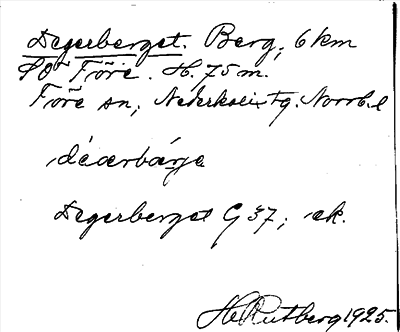 Degerberget. Berg, 6 km
SO Töre. H. 75 m.
Töre sn, Nederkalix tg. Norrb. l
Degerberget G 37; ek.
H Rutberg 1925.